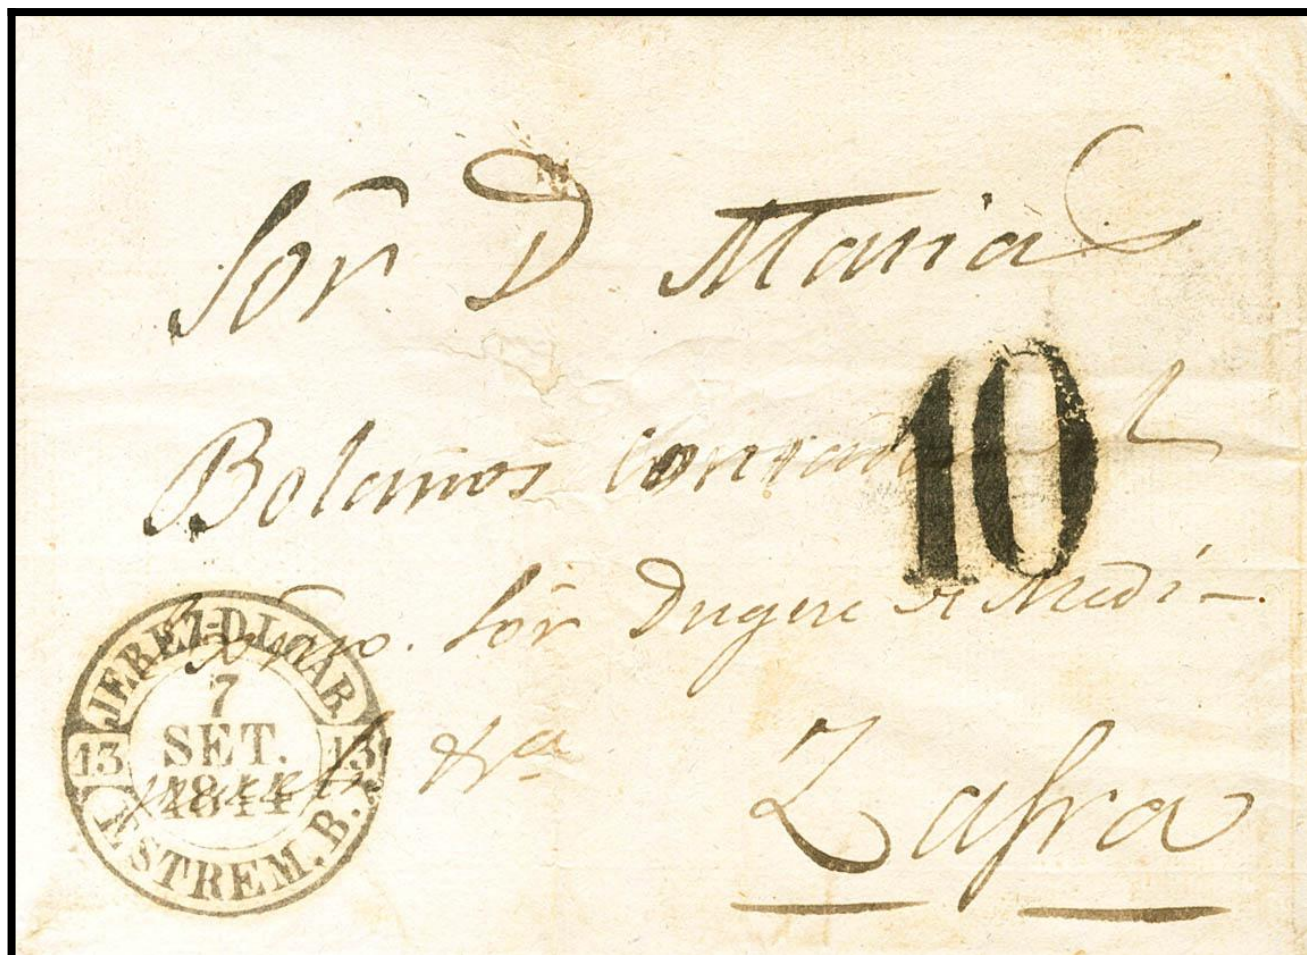 Sor. D. Maria
Bolaños
10
Sor Duque de Medi-
&a
Zafra
JEREZ-D.L.CAB.
7
SET.
1844
13 13
ESTREM.B.